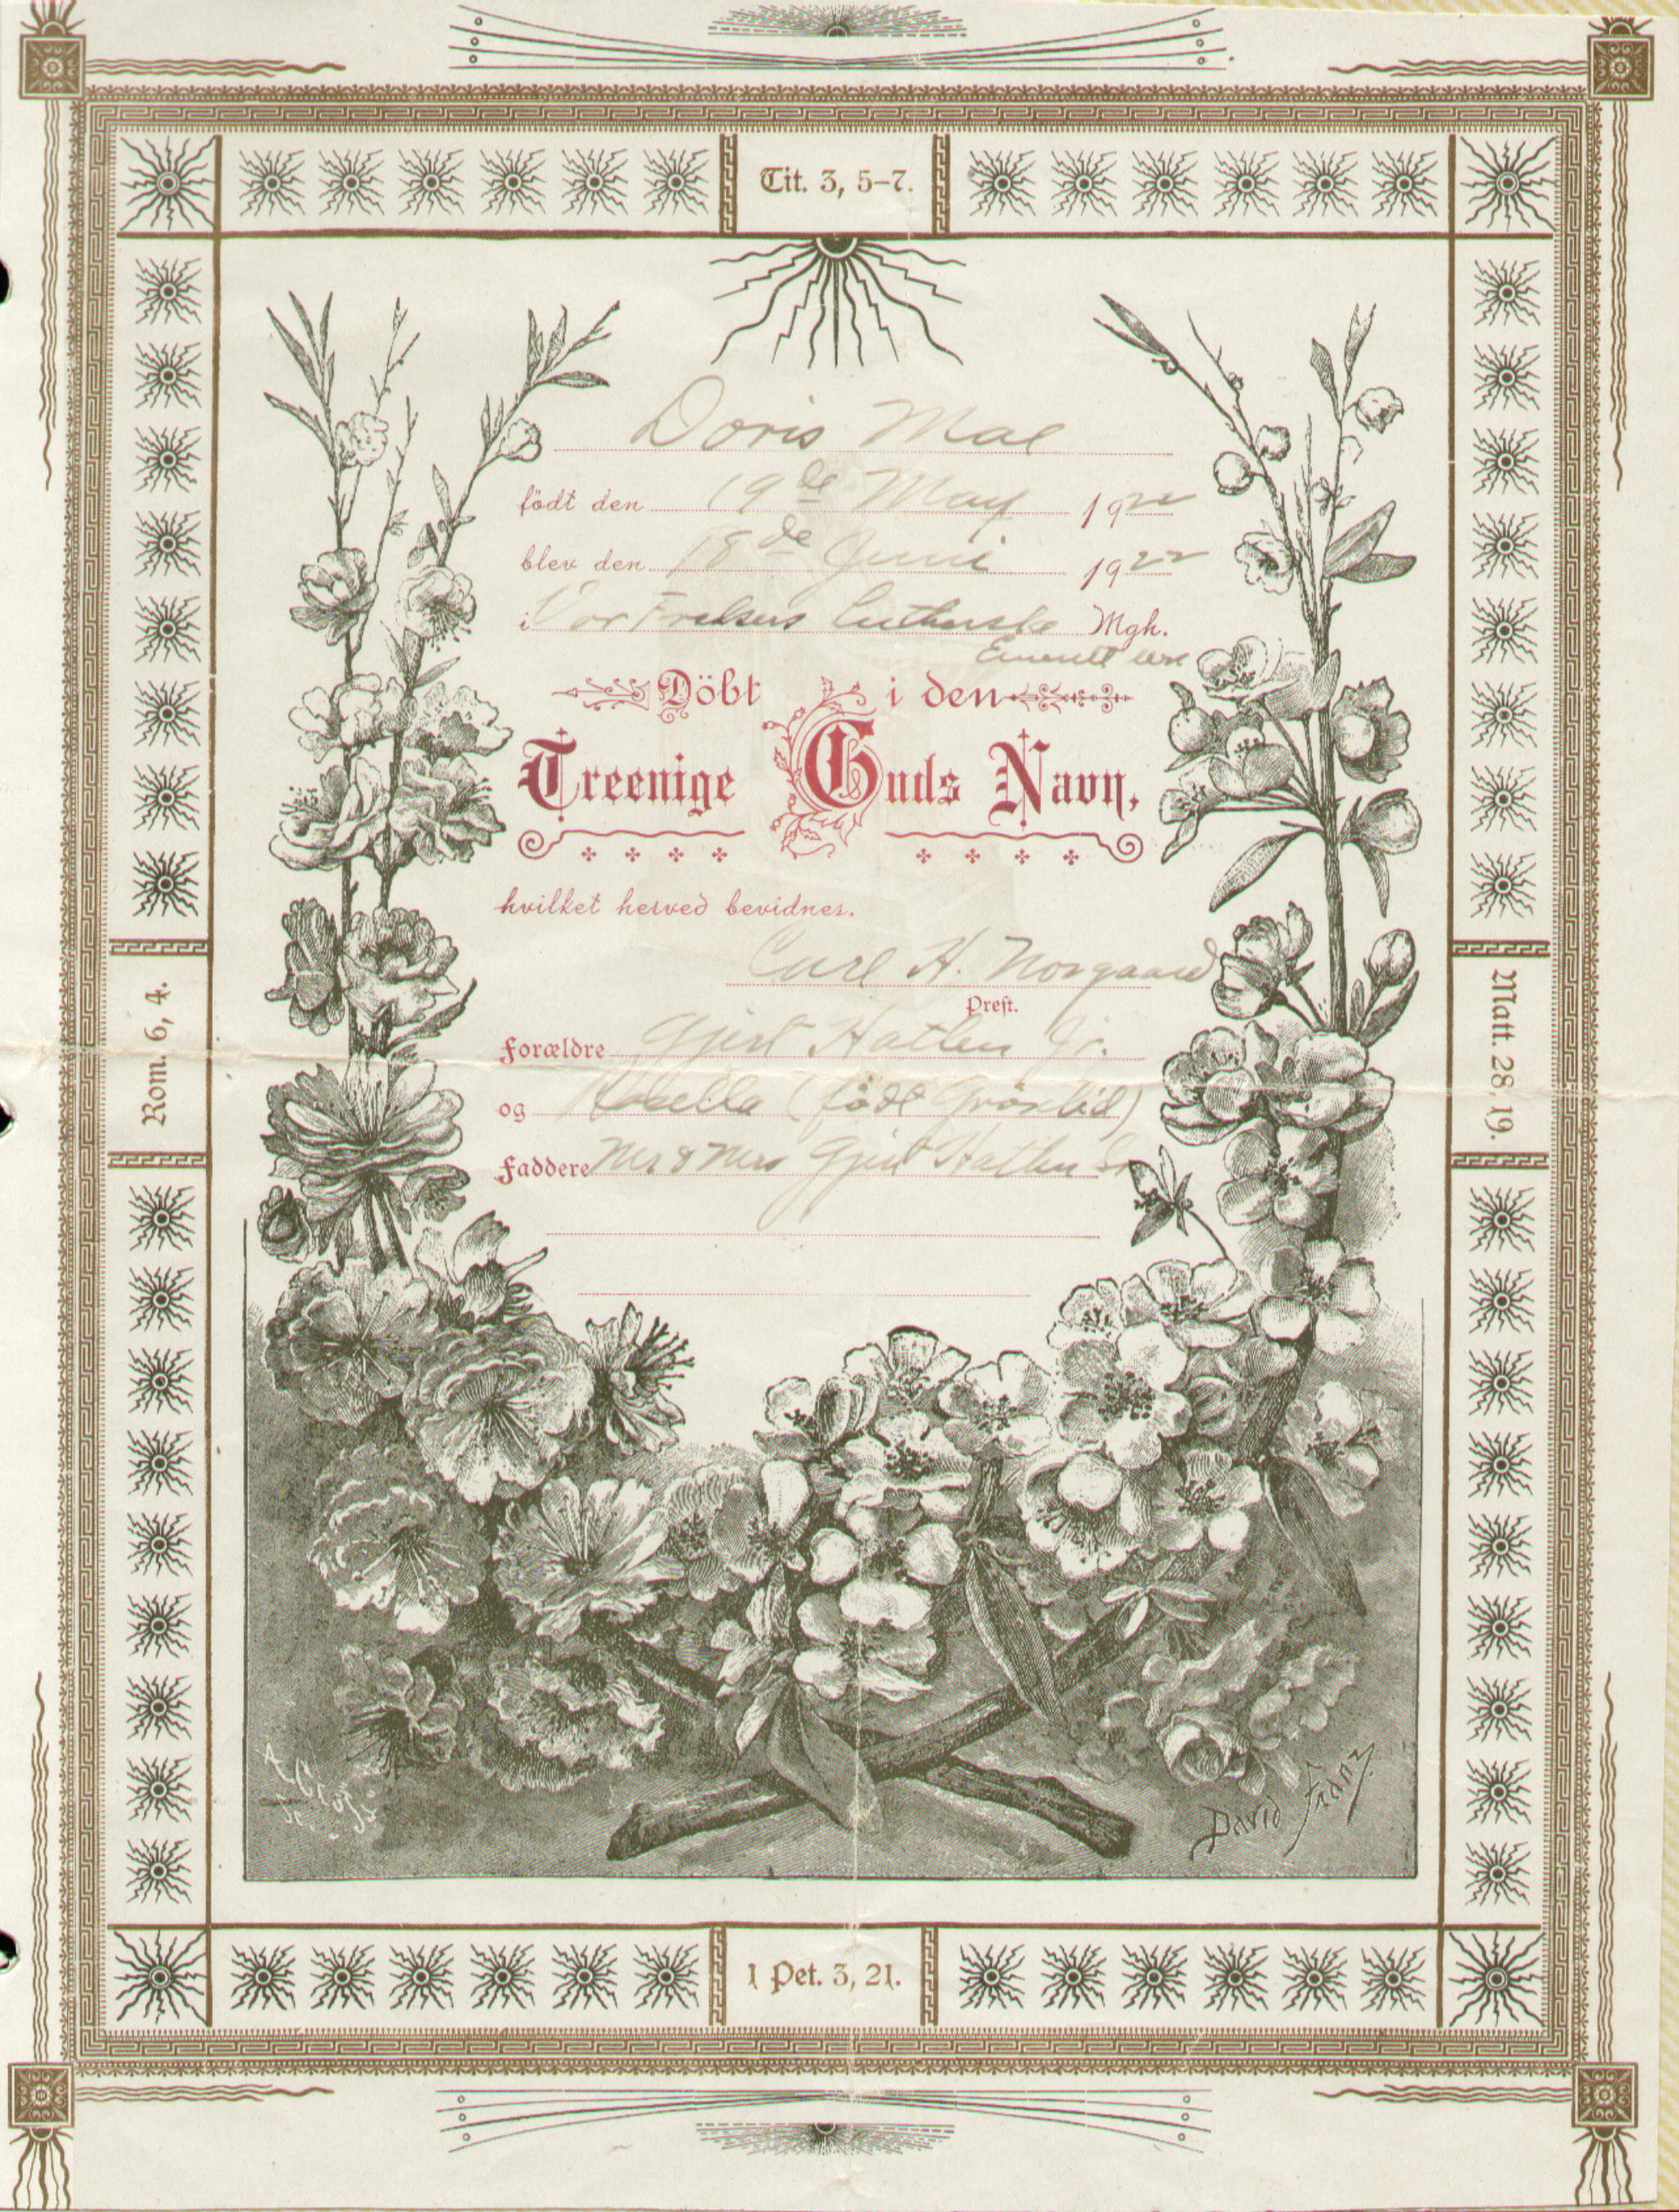 Tit. 3, 5-7.
Doris Mae
födt den 19de May 1922
blev den 18de Juni 1922
i Vor Frelsers Lutherske Mgh.
Döbt i den
Treenige Guds Navn,
hvilket herved bevidnes.
Carl H. Norgaard
Prest.
Forældre Gjert Hatlen Jr.
og (födt Gröxlid)
Faddere Mr & Mrs Gjert Hatlen Sr
Rom. 6, 4.
Matt. 28, 19.
David
1 Pet. 3, 21.